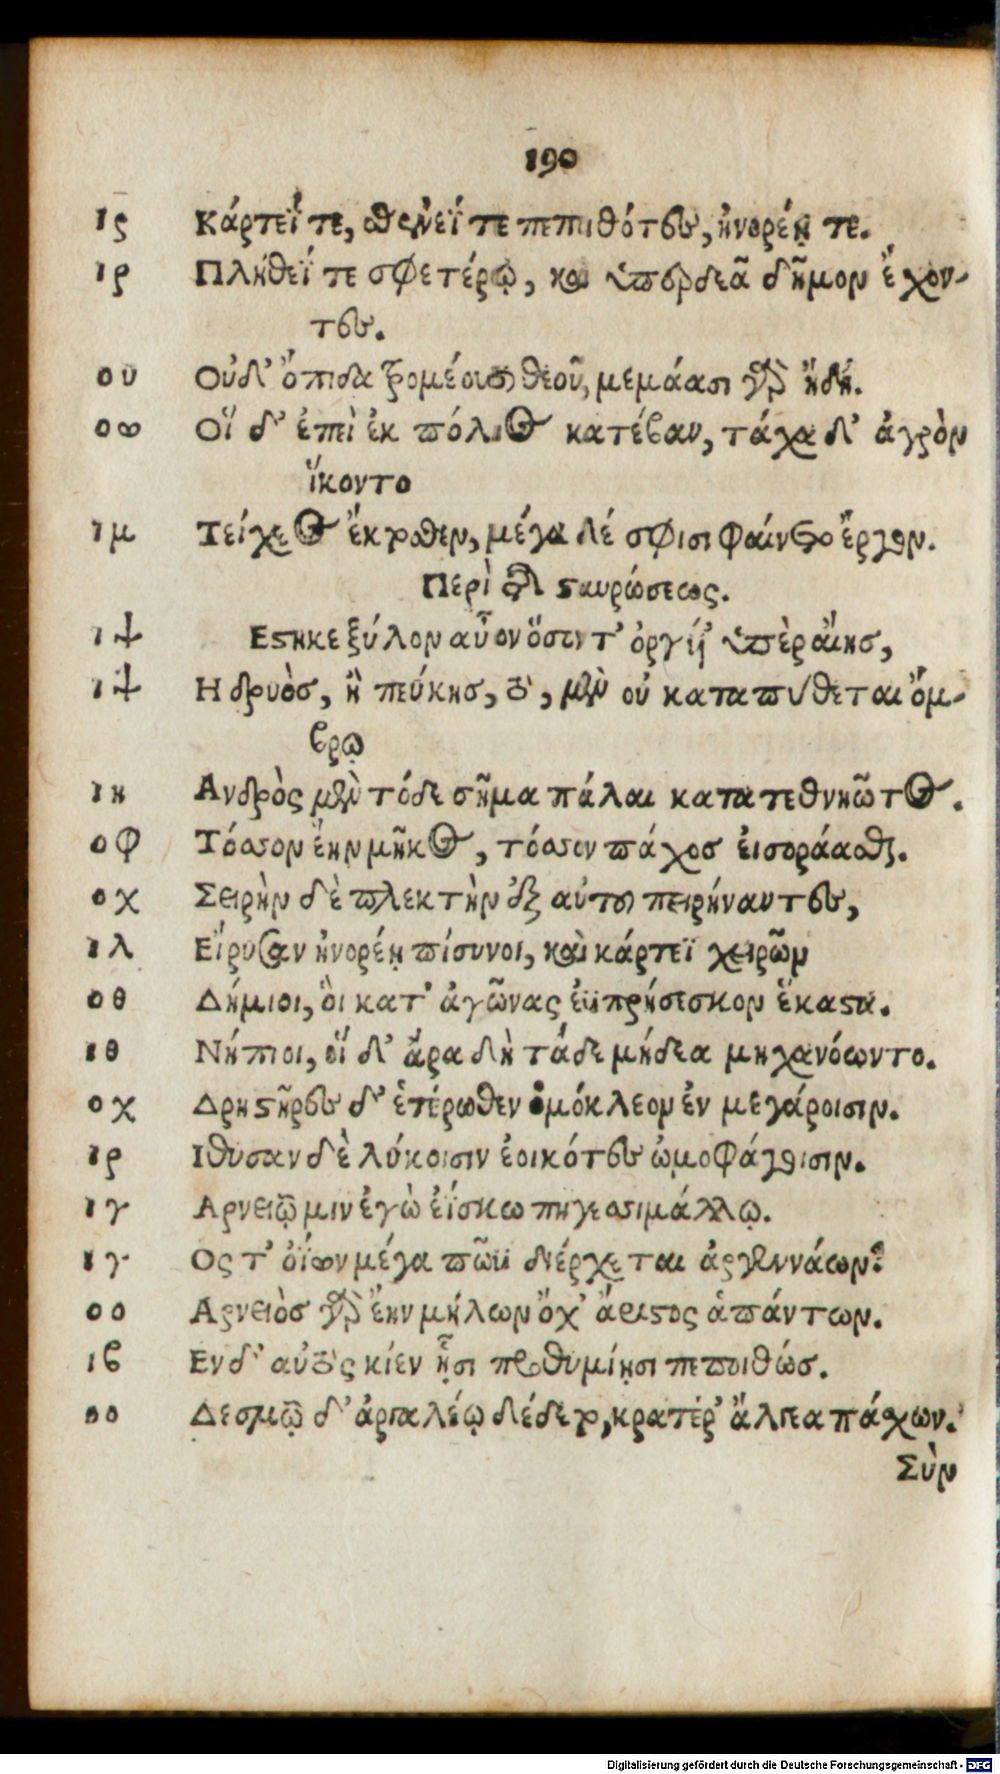 190
ις Κάρτεΐ τε, σθένεΐ τε πεπιθότες, ἠνορέῃ τε.
ιρ Πλήθεΐ τε σφετέρῳ, καὶ ὑπερδεᾶ δῆμον ἔχον-
τες.
ου Οὐδ' ὄπιδα τρομέουσι θεοῦ, μεμάασι γὰρ ἤδη.
οω Οἵ δ' ἐπεὶ ἐκ πόλιος κατέβαν, τάχα δ' ἀγρὸν
ἵκοντο
ιμ Τείχεος ἔκτοθεν, μέγα δέ σφισι φαίνετο ἔργον.
Περὶ τῆς σταυρώσεως.
ιψ Εστηκε ξύλον αὖον ὅσον τ' ὀργύι' ὑπὲρ αἴης,
ιψ Η δρυὸς, ἢ πεύκης, τὸ, μὲν οὐ καταπύθεται ὄμ-
βρῳ
ιη Ανδρὸς μὲν τόδε σῆμα πάλαι κατατεθνηῶτος.
οφ Τόσσον ἔην μῆκος, τόσσον πάχος εἰσοράασθαι.
οχ Σειρὴν δὲ πλεκτὴν ἐξ αὐτοῦ πειρήναντες,
ιλ Εἴρυσαν ἠνορέῃ πίσυνοι, καὶ κάρτεϊ χειρῶν
οθ Δήμιοι, οἳ κατ' ἀγῶνας ἐϋπρήσεσκον ἕκαστα.
ιθ Νήπιοι, οἵ δ' ἄρα δὴ τάδε μήδεα μηχανόωντο.
οχ Δρηστῆρες δ' ἑτέρωθεν ὁμόκλεον ἐν μεγάροισιν.
ιρ Ιθυσαν δὲ λύκοισιν ἐοικότες ὠμοφάγοισιν.
ιγ Αρνειῷ μιν ἐγὼ ἐΐσκω πηγεσιμάλλῳ.
ιγ Ος τ' ὀΐων μέγα πῶϋ διέρχεται ἀργεννάων.
οο Αρνειὸς γὰρ ἔην μήλων ὄχ' ἄριστος ἁπάντων.
ιβ Εν δ' αὐτὸς κίεν ᾗσι προθυμίῃσι πεποιθώς.
οο Δεσμῷ δ' ἀργαλέῳ δέδετο, κρατέρ' ἄλγεα πάσχων.
Σὺν
Digitalisierung gefördert durch die Deutsche Forschungsgemeinschaft - DFG